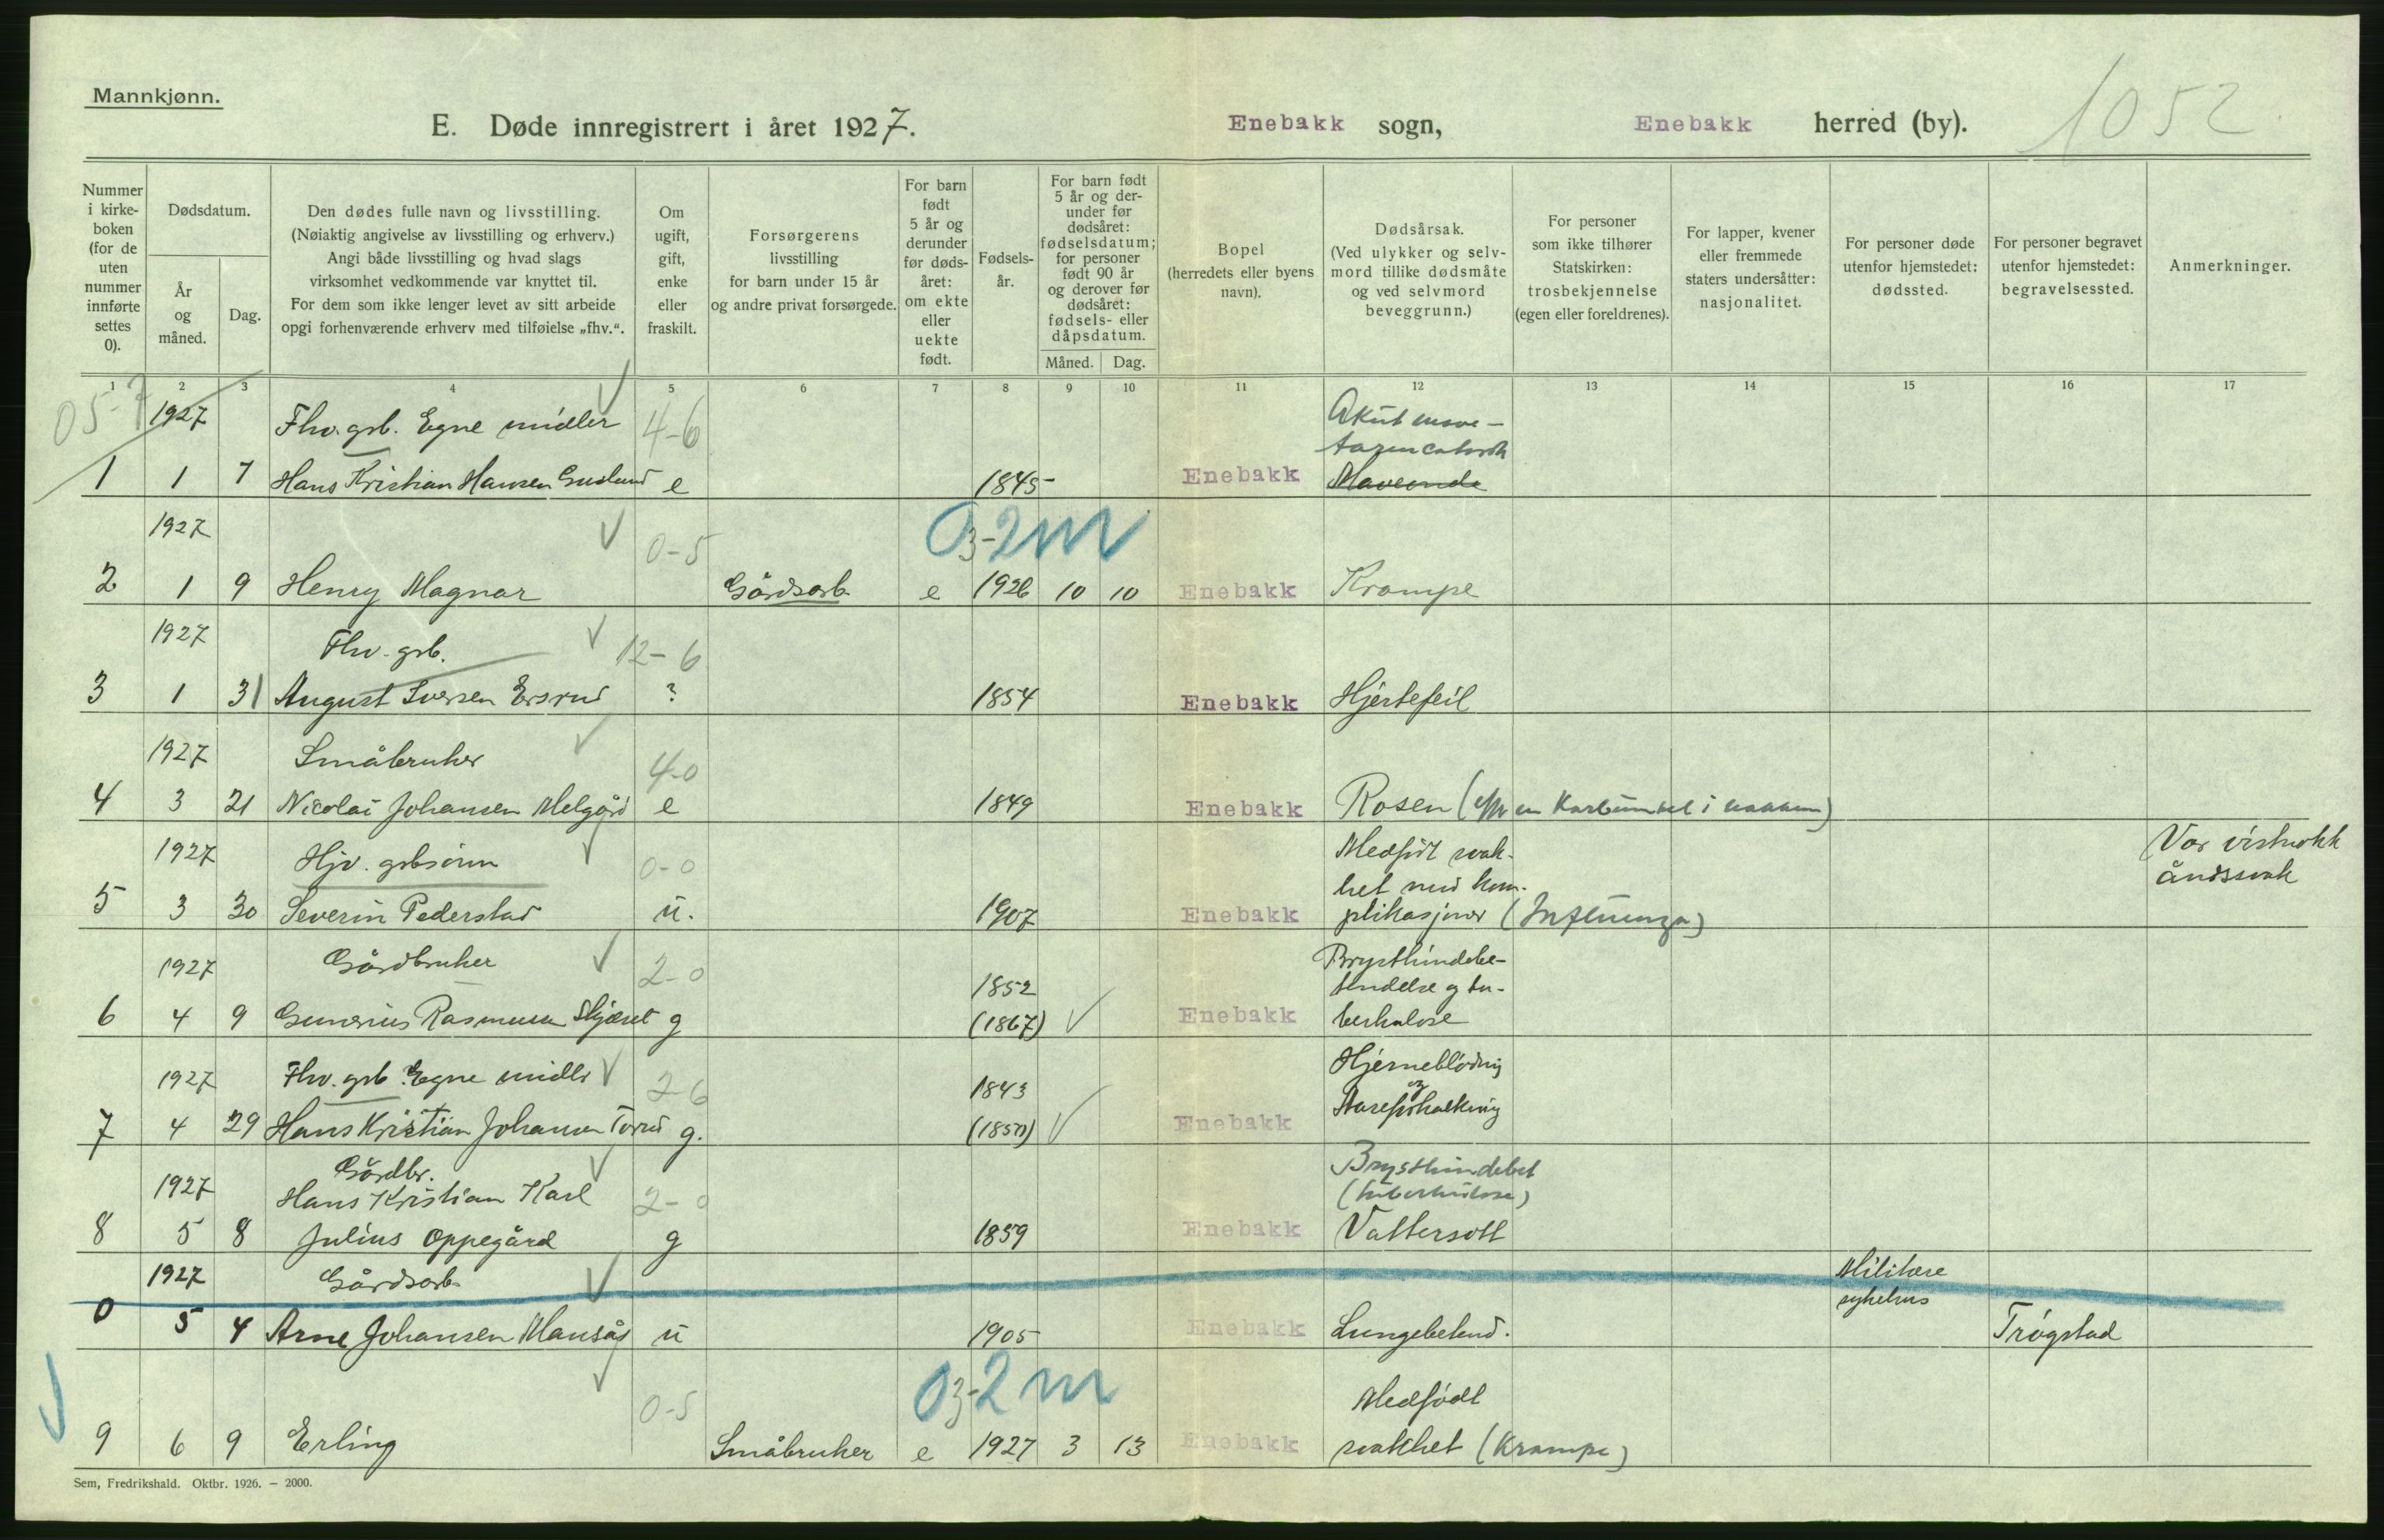 Mannkjønn.
E. Døde innregistrert i året 1927.
Enebakk sogn,
Enebakk herred (by).
1052
Nummer i kirke-boken (for de uten nummer innførte settes 0).
Dødsdatum.
År og måned.
Dag.
Den dødes fulle navn og livsstilling.
(Nøiaktig angivelse av livsstilling og erhverv.)
Angi både livsstilling og hvad slags
virksomhet vedkommende var knyttet til.
For dem som ikke lenger levet av sitt arbeide
opgi forhenværende erhverv med tilføielse „fhv.“.
Om ugift, gift, enke eller fraskilt.
Forsørgerens
livsstilling
for barn under 15 år
og andre privat forsørgede.
For barn født 5 år og derunder før døds-året: om ekte eller uekte født.
Fødsels-år.
For barn født 5 år og der-under før dødsåret: fødselsdatum; for personer født 90 år og derover før dødsåret: fødsels- eller dåpsdatum.
Måned. Dag.
Bopel
(herredets eller byens
navn).
Dødsårsak.
(Ved ulykker og selv-
mord tillike dødsmåte
og ved selvmord
beveggrunn.)
For personer
som ikke tilhører
Statskirken:
trosbekjennelse
(egen eller foreldrenes).
For lapper, kvener
eller fremmede
staters undersåtter:
nasjonalitet.
For personer døde
utenfor hjemstedet:
dødssted.
For personer begravet
utenfor hjemstedet:
begravelsessted.
Anmerkninger.
1 2 3 4 5 6 7 8 9 10 11 12 13 14 15 16 17
05-7
1927 Fhv. grb. Egne midler 4-6 Akut mave-
tarmcatarrh
1 1 7 Hans Kristian Hansen e 1845 Enebakk Maveonde
1927 0-5 03-2m
2 1 9 Henry Magnar Gårdsarb. e 1926 10 10 Enebakk Krampe
1927 Fhv. grb. 12-6
3 1 31 August Iversen Ersrud ? 1854 Enebakk Hjertefeil
1927 Småbruker 4-0
4 3 21 Nicolai Johansen Melgård e 1849 Enebakk Rosen (eft en Karbunkel i nakken)
1927 Hjv. grbsønn 0-0 Medfødt svak-
het med kom-
5 3 30 Severin Pederstad u. 1907 Enebakk plikasjoner (Influenza)
Var vistnokk
åndssvak
1927 Gårdbruker 2-0 1852 Brysthindebe-
tendelse og tu-
6 4 9 Gunerius Rasmussen Skjæret g (1867) Enebakk berkulose
1927 Fhv. grb. Egne midler 2 6 1843 Hjerneblødning
og
Åreforkalkning
7 4 29 Hans Kristian Johansen g. Enebakk
1927 Gårdbr. 2-0 Brysthindebet
Hans Kristian Karl (tuberkulose)
8 5 8 Julius Oppegård g 1859 Enebakk Vattersott
1927 Gårdsarb. Militære
sykehus
0 5 4 Arne Johansen Mansås u 1905 Enebakk Lungebetend. Trøgstad
0-5 03-2m Medfødt
9 6 9 Erling Småbruker e 1927 3 13 Enebakk svakhet (Krampe)
Sem, Fredrikshald. Oktbr. 1926. – 2000.